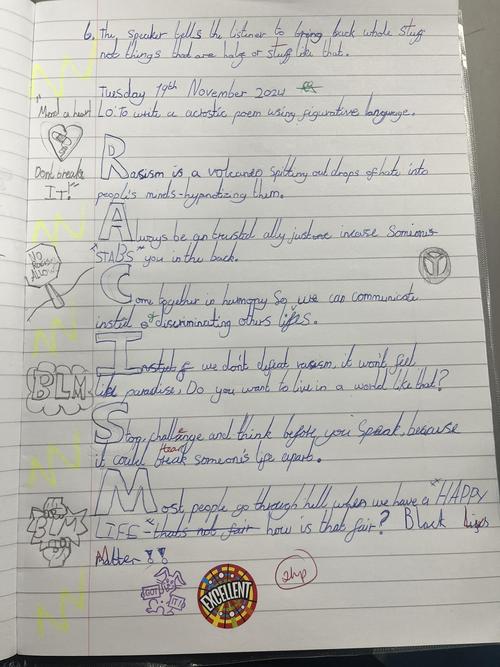 6. The speaker tells the listener to bring back whole stuff
not things that are half or stuff like that.
Tuesday 19th November 2024
L.O: To write a acrostic poem using figurative language.
"Mend a heart
Dont break
IT!"
Rasism is a volcano spitting out drops of hate into
people's minds-hypnotizing them.
Always be an trusted ally just incase Someone
"STABS" you in the back.
NO
RACISM
ALLOWED
Come together in harmony So we can communicate
insted of discriminating others lifes.
Insted if we don't defeat rasism, it won't feel
like paradise, Do you want to live in a world like that?
BLM
Stop, challenge and think before you speak, because
it could tear break someone's life apart.
Most people go through hell when we have a "HAPPY
LIFE"-thats not fair how is that fair? Black Lives
BLM
Matter!!
GOT IT!
EXCELLENT
2hp